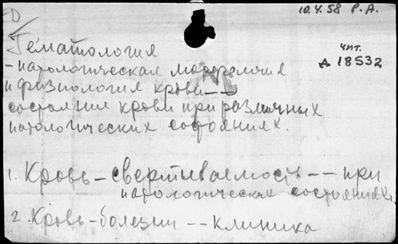 D
10.4.58 Р.А.
Гематология
чит.
д 18532
- патологическая морфология
и физиология крови --
состояние крови при различных
патологических состояниях.
1. Кровь - свертываемость -- при
патологических состояниях.
2. Кровь - болезни -- клиника